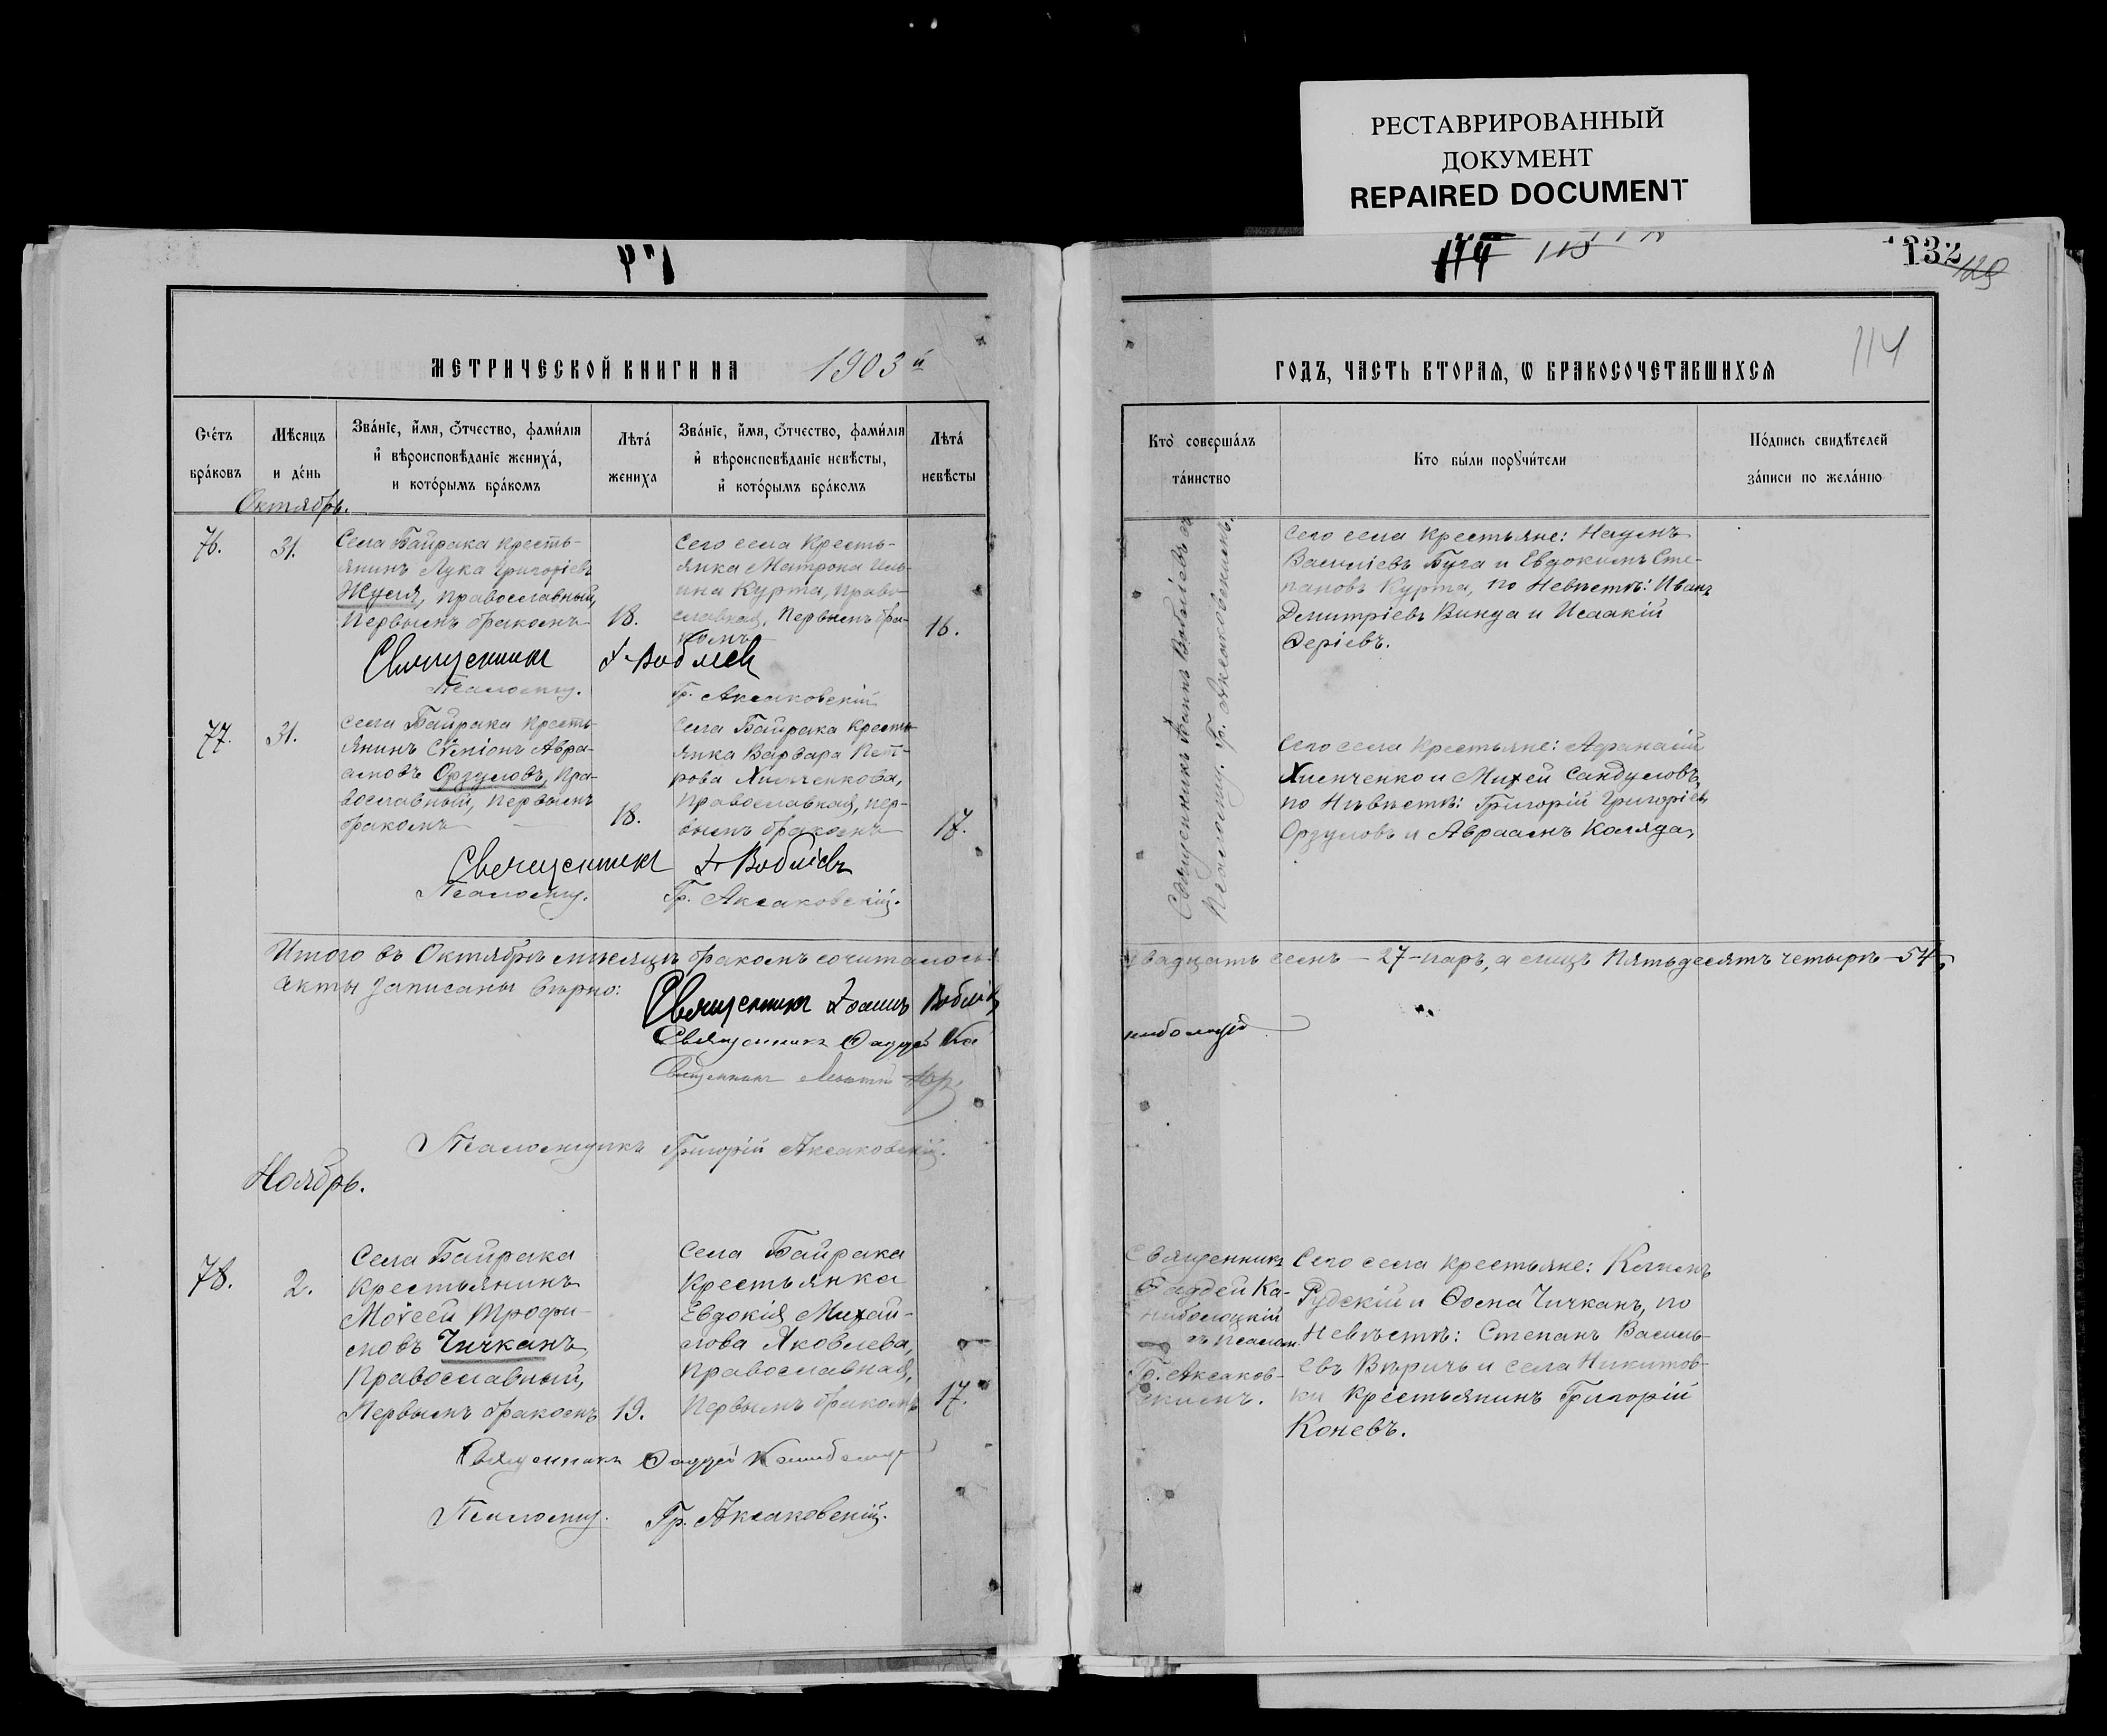 РЕСТАВРИРОВАННЫЙ
ДОКУМЕНТ
REPAIRED DOCUMENT
132
114
МЕТРИЧЕСКОЙ КНИГИ НА 1903й
ГОДЪ, ЧАСТЬ ВТОРАЯ, Ѡ БРАКОСОЧЕТАВШИХСЯ
Счётъ
бра́ковъ
Мѣсяцъ
и де́нь
Зва́нїе, и́мя, ѻ́тчество, фами́лїя
и҆ вѣроисповѣ́данїе жениха́,
и кото́рымъ бра́комъ
Лѣта́
жениха
Зва́нїе, и́мя, ѻ́тчество, фами́лїя
и҆ вѣроисповѣ́данїе невѣ́сты,
и҆ кото́рымъ бра́комъ
Лѣта́
невѣ́сты
Кто̀ соверша́лъ
та́инство
Кто бы́ли порꙋчи́тели
По́дпись свидѣ́телей
за́писи по жела́нїю
Октябрь.
76.
31.
Села Байрака кресть-
янинъ Лука Григоріевъ
Жуля, православный,
первымъ бракомъ
18.
Сего села кресть-
янка Матрона Иль-
ина Курта, право-
славная, первымъ бра-
комъ
16.
Священникъ Іоаннъ Вобліевъ съ
Псаломщ. Гр. Аксаковскимъ.
Сего села крестьяне: Наумъ
Василіевъ Буга и Евдокимъ Сте-
пановъ Курта, по невѣстѣ: Иванъ
Димитріевъ Винда и Исаакій
Ѳеріевъ.
Священникъ І. Вобліевъ
Псаломщ. Гр. Аксаковскій
77.
31.
Села Байрака кресть-
янинъ Сѵмеонъ Авра-
амовъ Орзуловъ, пра-
вославный, первымъ
бракомъ
18.
Села Байрака кресть-
янка Варвара Пет-
рова Химченкова,
православная, пер-
вымъ бракомъ
17.
Сего села крестьяне: Аѳанасій
Химченко и Михей Сандуловъ,
по невѣстѣ: Григорій Григоріев
Орзуловъ и Авраамъ Коляда,
Священникъ І. Вобліевъ
Псаломщ. Гр. Аксаковскій.
Итого въ Октябрѣ мѣсяцѣ бракомъ сочиталось: двадцать семь – 27 – паръ, а лицъ пятьдесятъ четыре – 54,
Акты записаны вѣрно:
Священникъ Іоаннъ Вобліевъ
Священникъ Ѳаддей Ка
ниболоцкій
Священникъ
Псаломщикъ Григорій Аксаковскій.
Ноябрь.
78.
2.
Села Байрака
крестьянинъ
Моѵсей Трофи-
мовъ Чичканъ,
православный,
первымъ бракомъ
19.
Села Байрака
крестьянка
Евдокія Михай-
лова Яковлева,
православная,
первымъ бракомъ
17.
Священникъ
Ѳаддей Ка-
ниболоцкій
съ псалом.
Гр. Аксаков-
скимъ.
Сего села крестьяне:
Рудскій и Ѳома Чичканъ, по
невѣстѣ: Степанъ Василь-
евъ Вѣричъ и села Никитов-
ки крестьянинъ Григорій
Коневъ.
Священникъ Ѳаддей Каниболоцкій
Псаломщ. Гр. Аксаковскій.